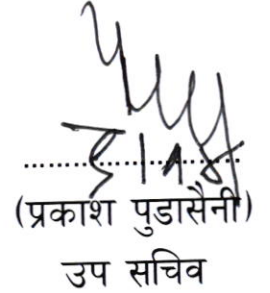 (प्रकाश पुडासैनी)
उप सचिव